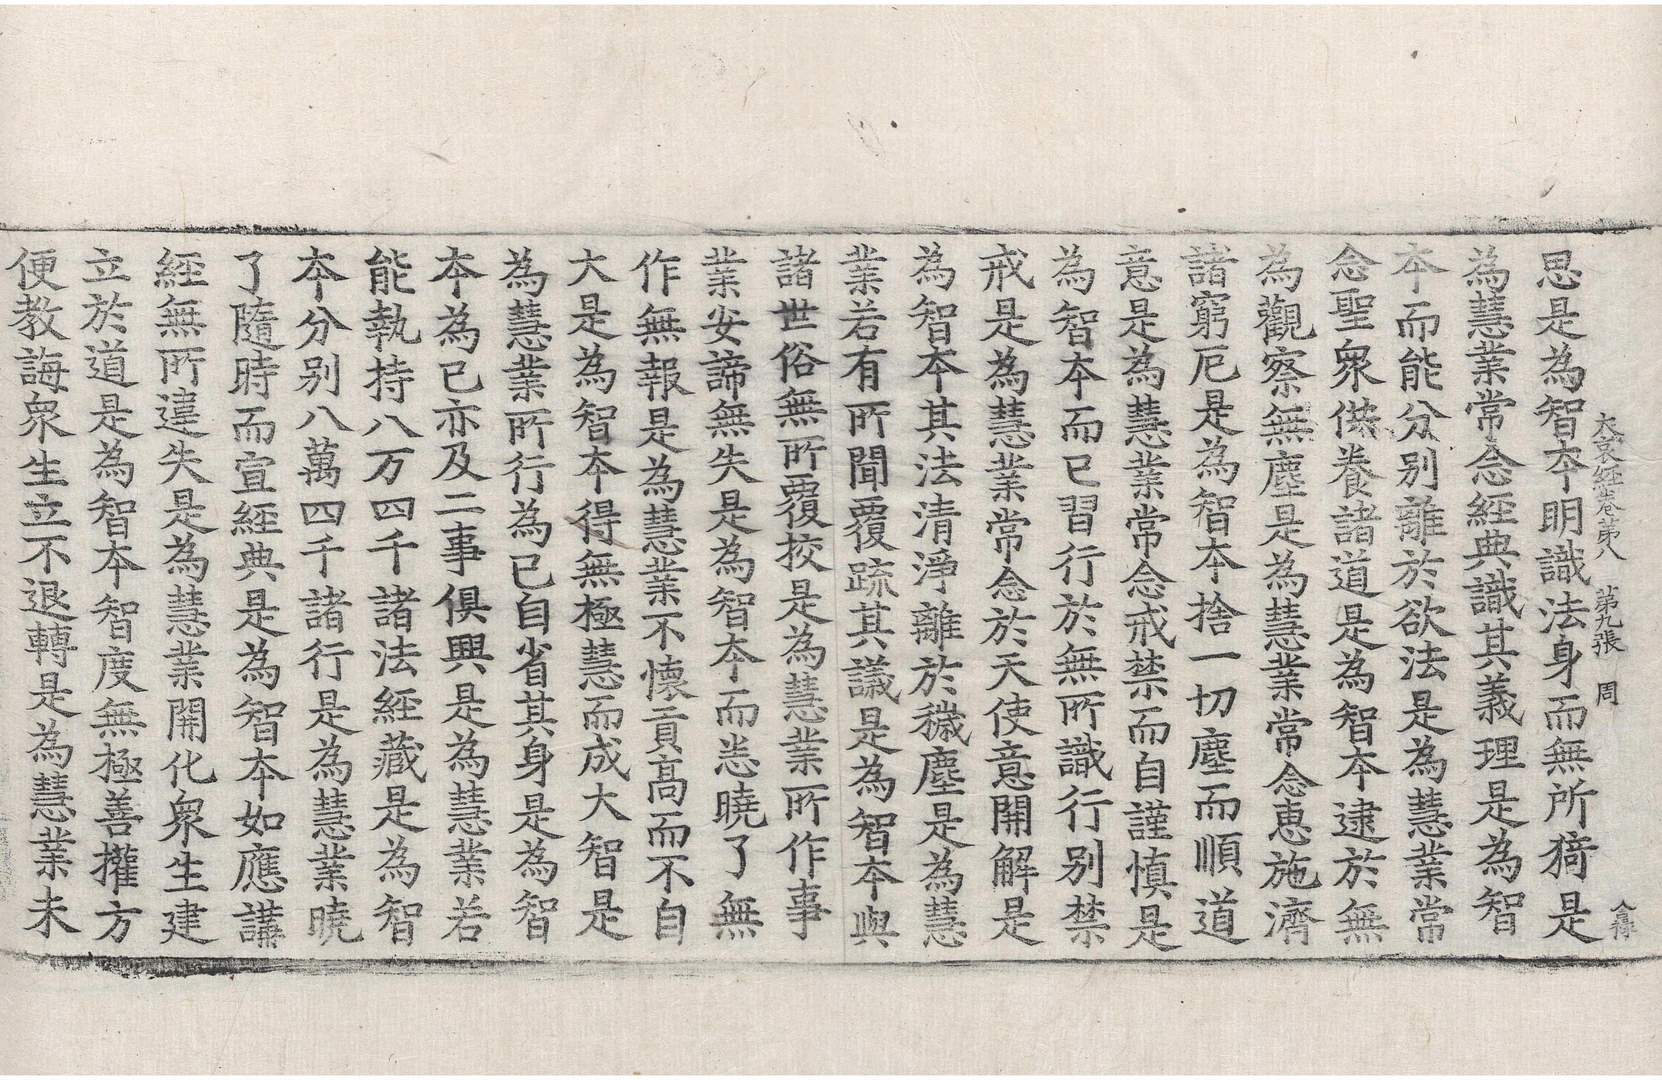 大哀經卷第八　第九張　周
思是為智夲明識法身而無所猗是
為慧業常念經典識其義理是為智
夲而能分别離於欲法是為慧業常
念聖衆供養諸道是為智夲逮於無
為觀察無塵是為慧業常念惠施濟
諸窮厄是為智夲捨一切塵而順道
意是為慧業常念戒禁而自謹慎是
為智夲而已習行於無所識行别禁
戒是為慧業常念於天使意開解是
為智夲其法清淨離於穢塵是為慧
業若有所聞覆疏其議是為智夲與
諸世俗無所覆挍是為慧業所作事
業安諦無失是為智夲而恣曉了無
作無報是為慧業不懷貢高而不自
大是為智夲得無極慧而成大智是
為慧業所行為已自省其身是為智
夲為已亦及二事俱興是為慧業若
能執持八万四千諸法經藏是為智
夲分别八萬四千諸行是為慧業曉
了隨時而宣經典是為智夲如應講
經無所違失是為慧業開化衆生建
立於道是為智夲智度無極善權方
便教誨衆生立不退轉是為慧業未